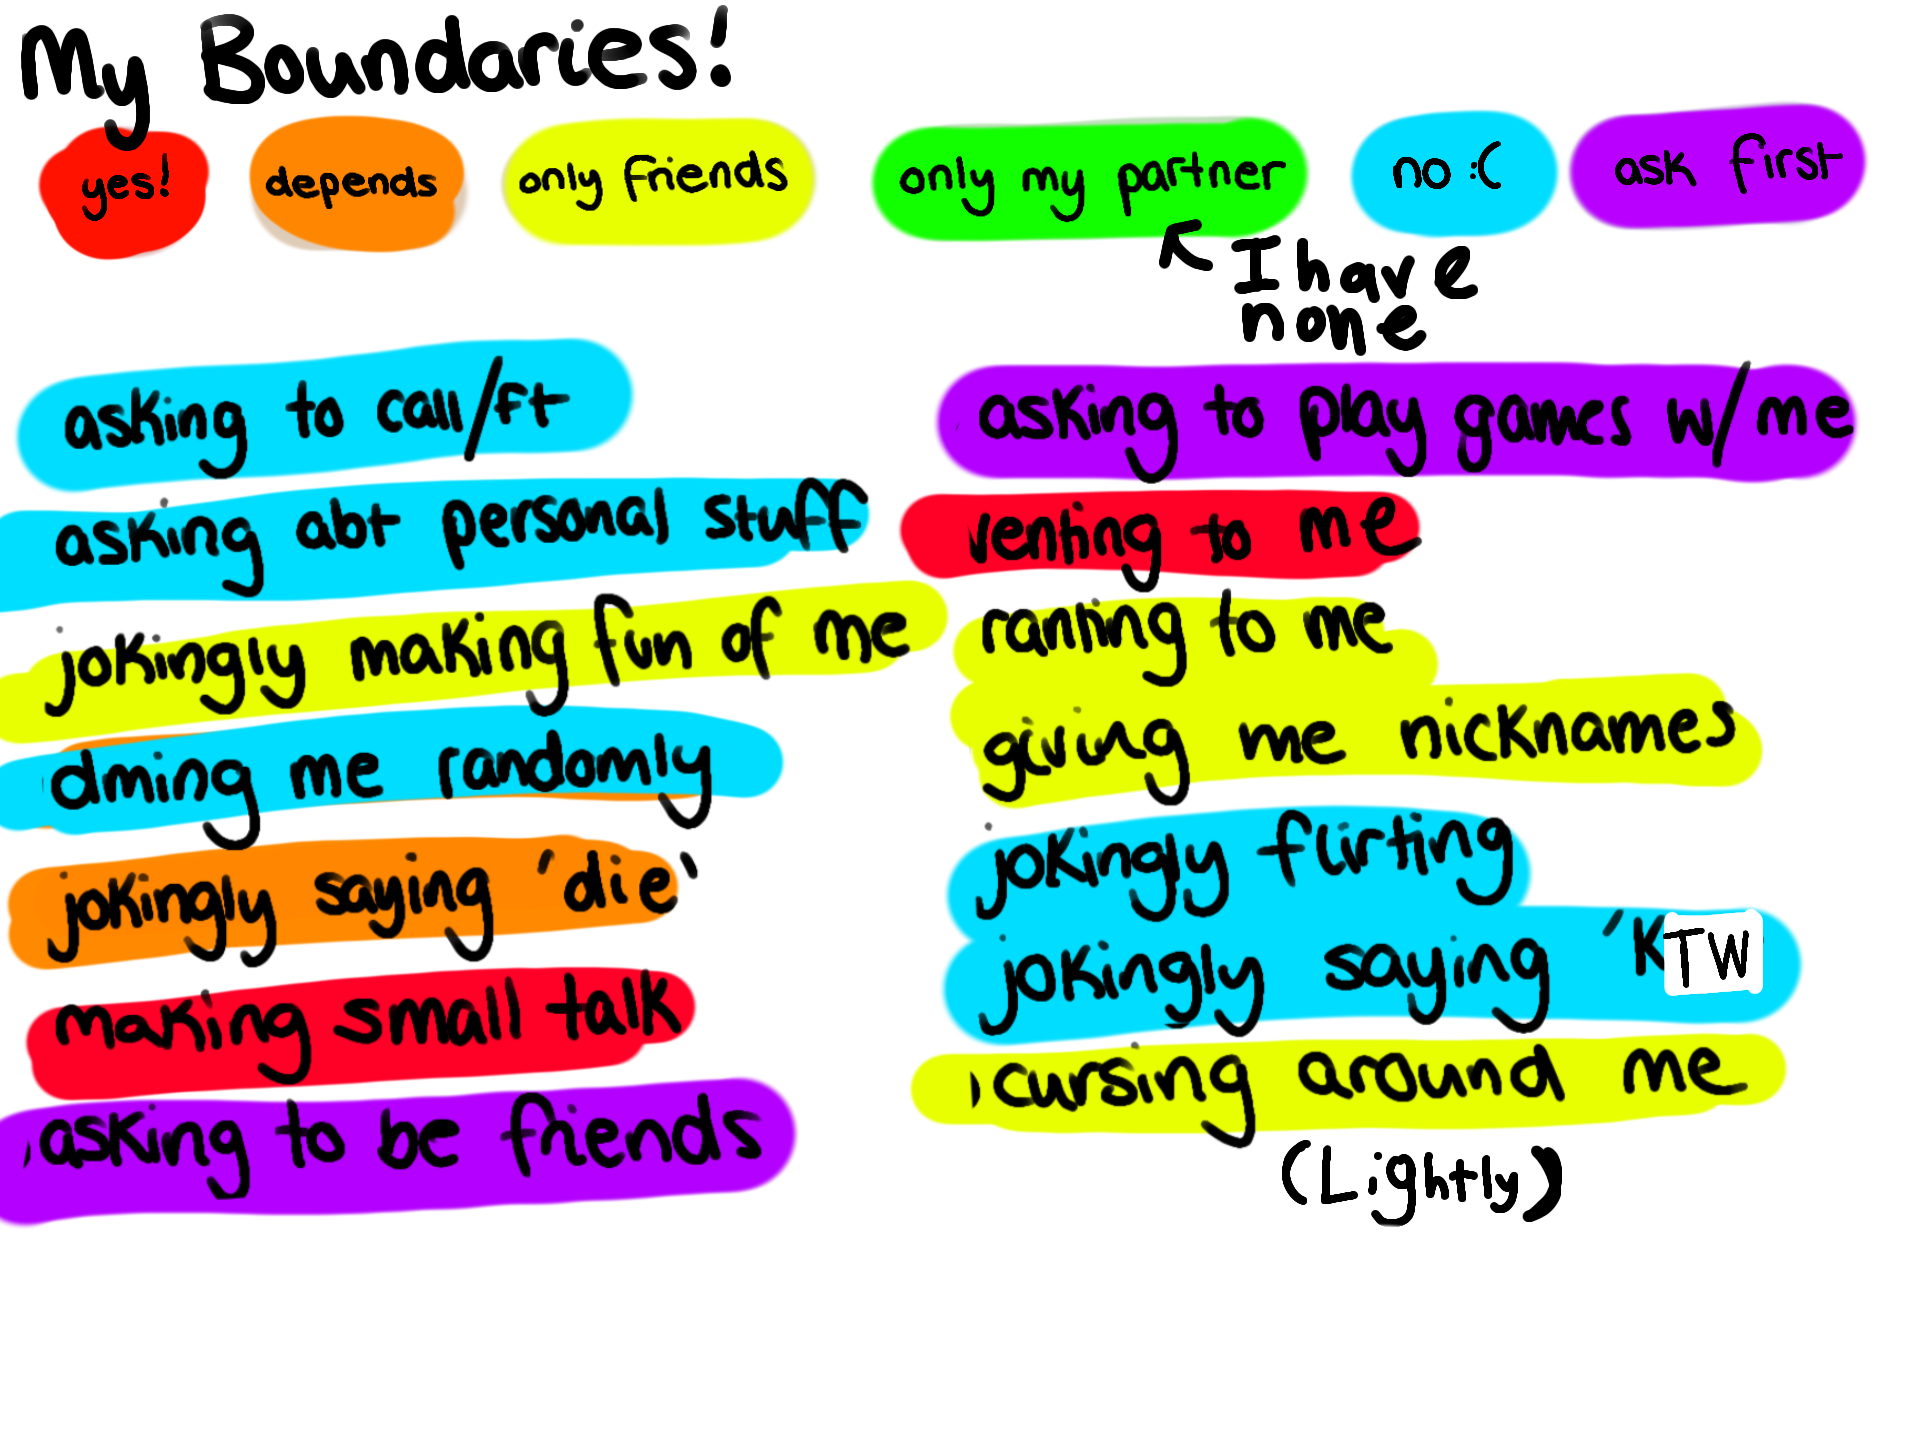 My Boundaries!
yes!
depends
only friends
only my partner
no :(
ask first
I have
none
asking to call/ft
asking abt personal stuff
jokingly making fun of me
dming me randomly
jokingly saying 'die'
making small talk
asking to be friends
asking to play games w/me
venting to me
ranting to me
giving me nicknames
jokingly flirting
jokingly saying 'K TW
cursing around me
(Lightly)